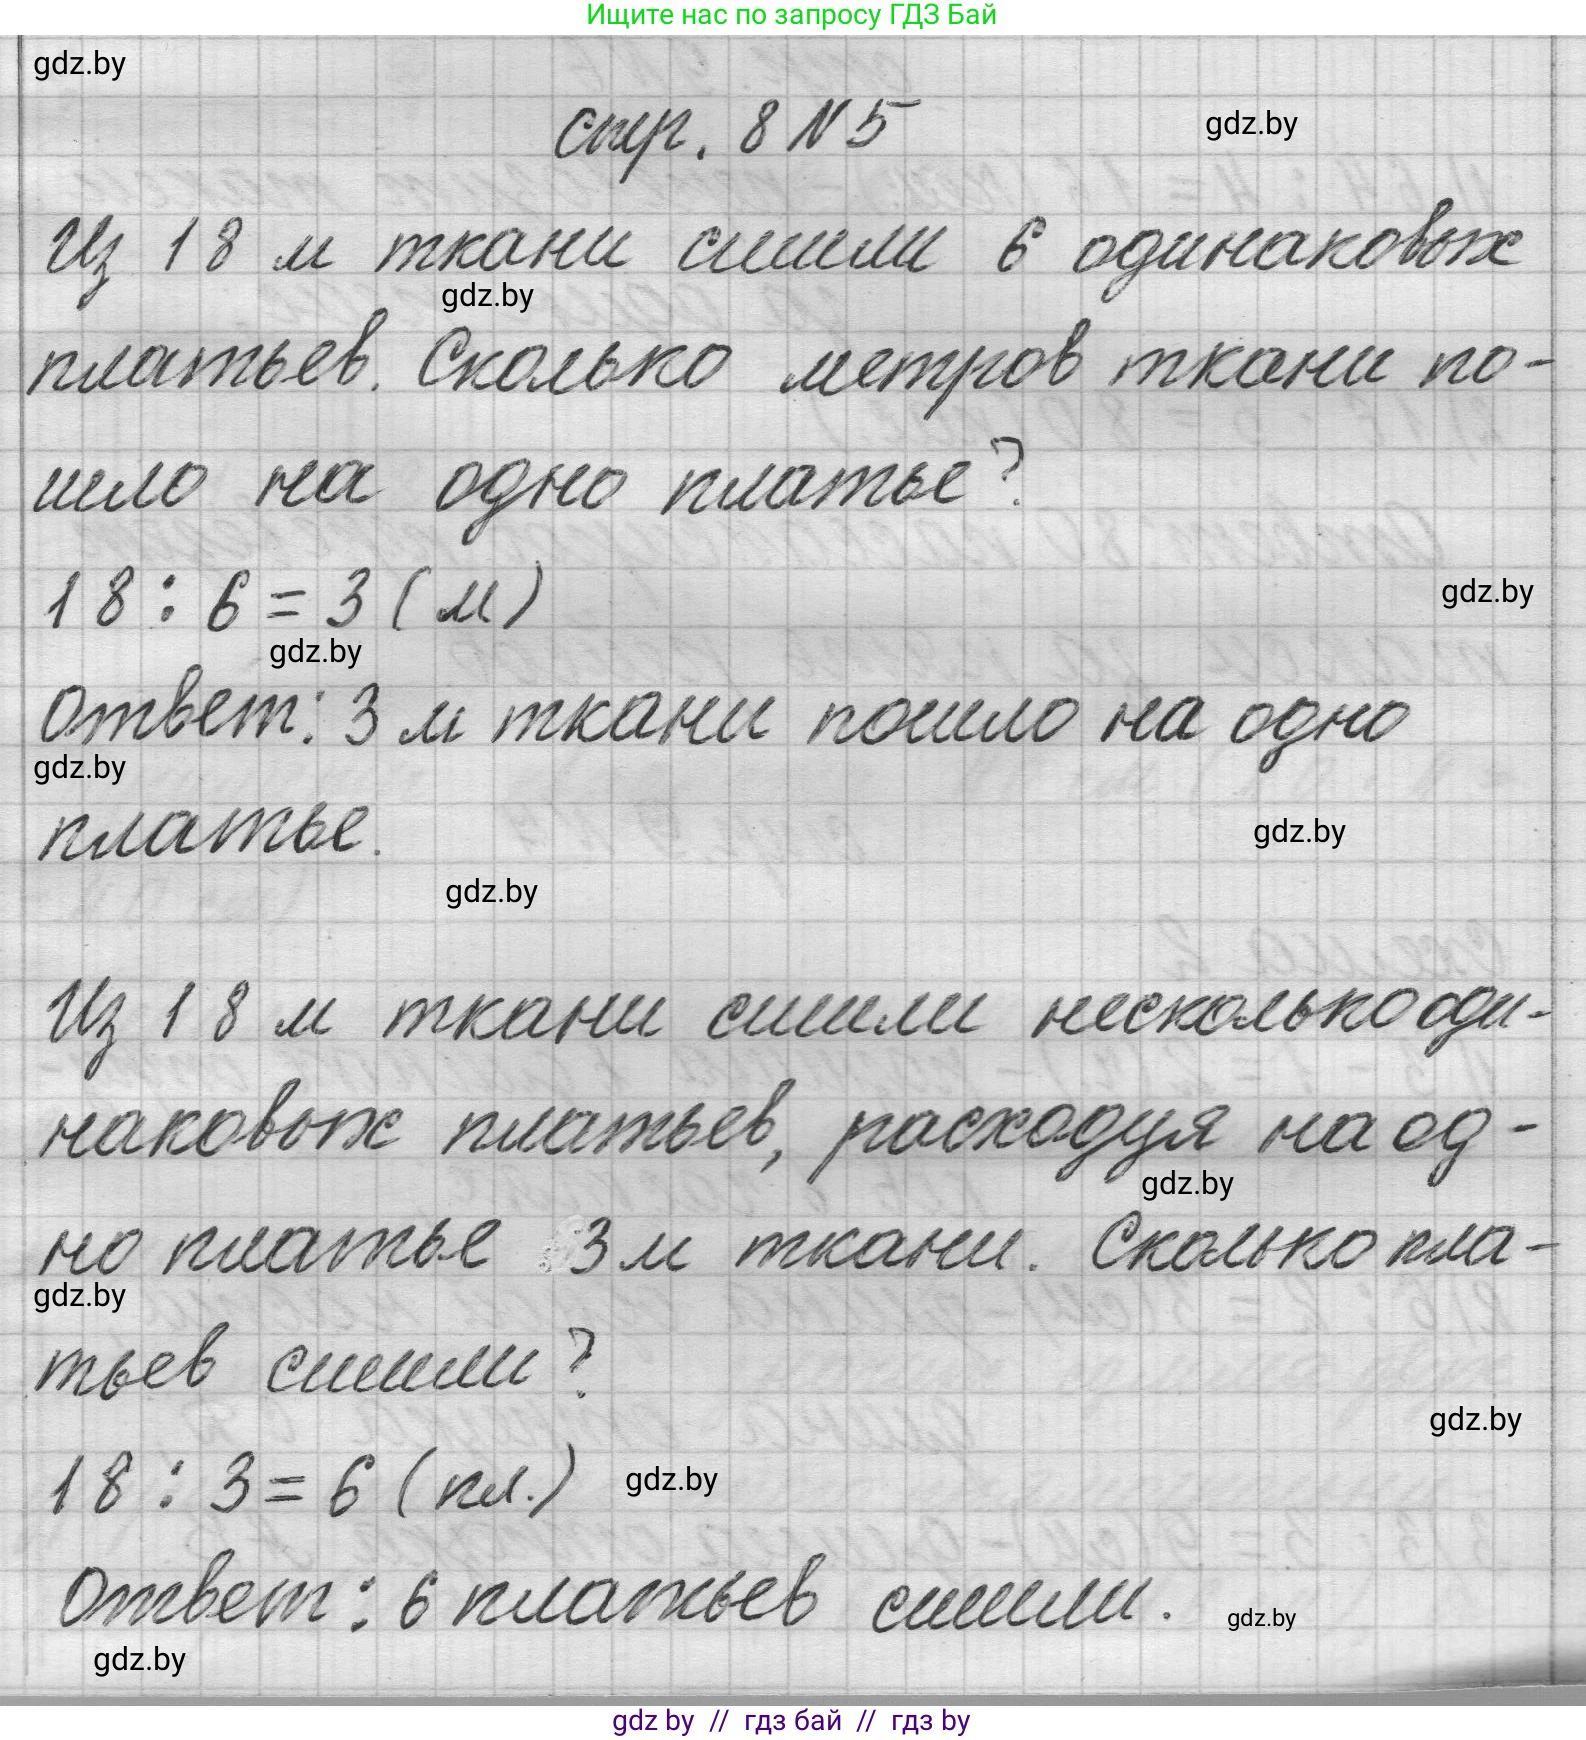 Ищите нас по запросу ГДЗ Бай
gdz.by
стр. 8 N 5
gdz.by
Из 18 м ткани сшили 6 одинаковых
gdz.by
платьев. Сколько метров ткани по-
шло на одно платье?
18 : 6 = 3 (м)
gdz.by
gdz.by
Ответ: 3 м ткани пошло на одно
gdz.by
платье.
gdz.by
gdz.by
Из 18 м ткани сшили несколько оди-
наковых платьев, расходуя на од-
gdz.by
но платье 3 м ткани. Сколько пла-
gdz.by
тьев сшили?
gdz.by
18 : 3 = 6 (пл.)
gdz.by
Ответ: 6 платьев сшили.
gdz.by
gdz.by
gdz by // гдз бай // гдз by